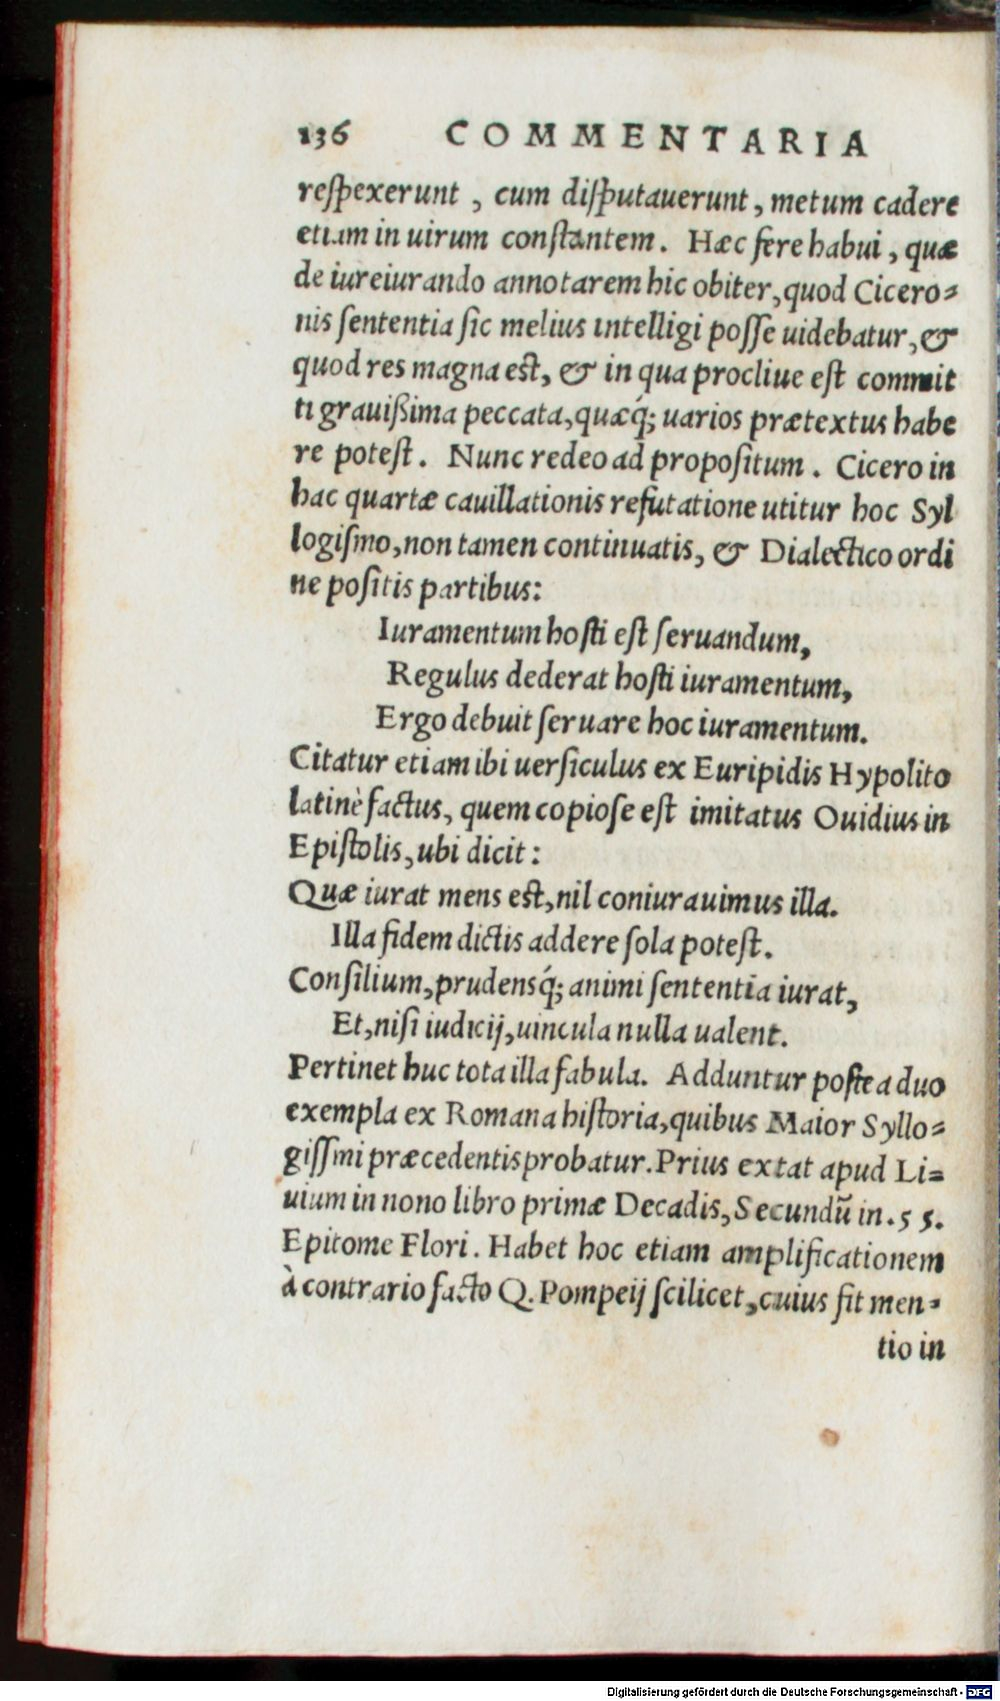 136 COMMENTARIA
reſpexerunt , cum diſputauerunt, metum cadere
etiam in uirum conſtantem. Hæc fere habui, quæ
de iureiurando annotarem hic obiter, quod Cicero⸗
nis ſententia ſic melius intelligi poſſe uidebatur, &
quod res magna eſt, & in qua procliue eſt commit
ti grauißima peccata, quæq́; uarios prætextus habe
re poteſt. Nunc redeo ad propoſitum. Cicero in
hac quartæ cauillationis refutatione utitur hoc Syl
logiſmo, non tamen continuatis, & Dialectico ordi
ne poſitis partibus:
Iuramentum hoſti eſt ſeruandum,
Regulus dederat hoſti iuramentum,
Ergo debuit ſeruare hoc iuramentum.
Citatur etiam ibi uerſiculus ex Euripidis Hypolito
latinè factus, quem copioſe eſt imitatus Ouidius in
Epiſtolis, ubi dicit:
Quæ iurat mens eſt, nil coniurauimus illa.
Illa fidem dictis addere ſola poteſt.
Conſilium, prudensq́; animi ſententia iurat,
Et, niſi iudicij, uincula nulla ualent.
Pertinet huc tota illa fabula. Adduntur poſtea duo
exempla ex Romana hiſtoria, quibus Maior Syllo⸗
giſſmi præcedentis probatur. Prius extat apud Li⸗
uium in nono libro primæ Decadis, Secundũ in. 55.
Epitome Flori. Habet hoc etiam amplificationem
à contrario facto Q. Pompeij ſcilicet, cuius fit men⸗
tio in
Digitalisierung gefördert durch die Deutsche Forschungsgemeinschaft - DFG